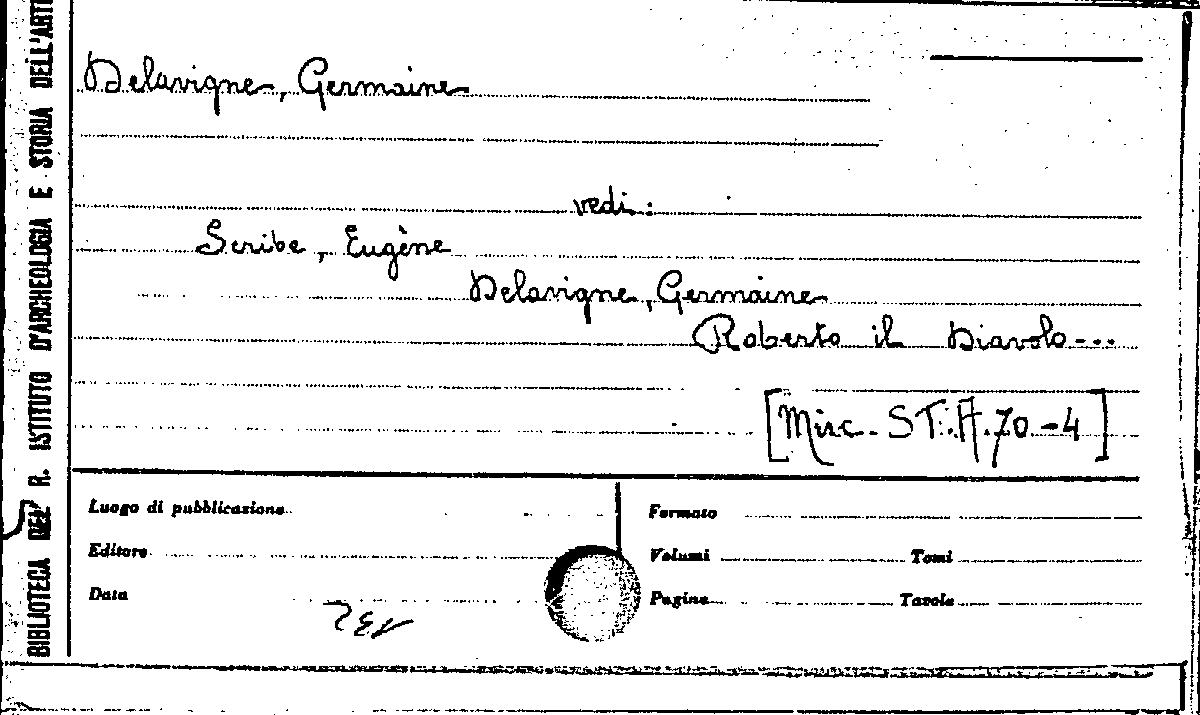 BIBLIOTECA DEL R. ISTITUTO D'ARCHEOLOGIA E STORIA DELL'ARTE
Delavigne, Germaine
vedi:
Scribe, Eugène
Delavigne, Germaine
Roberto il Diavolo...
[Misc. ST.A.70-4]
Luogo di pubblicazione
Formato
Editore
Volumi
Tomi
Data
Pagine
Tavole